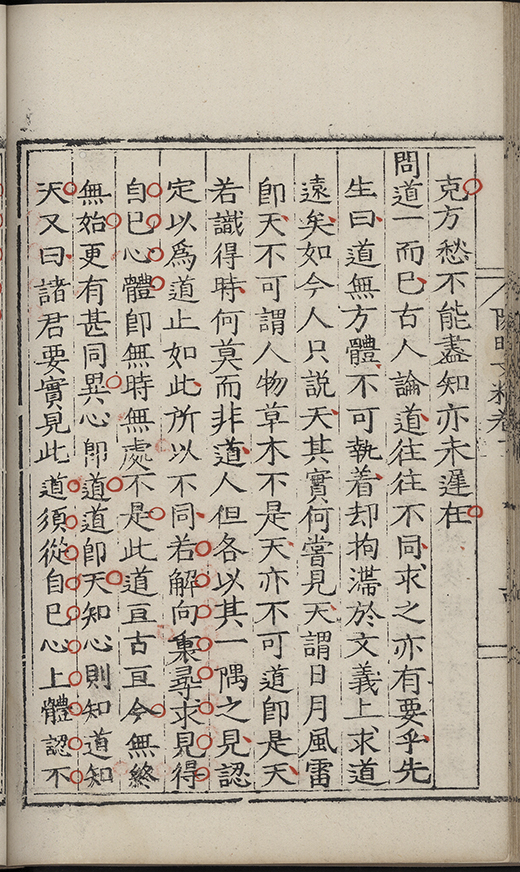 克方愁不能盡知亦未遲在
問道一而已古人論道往往不同求之亦有要乎先
生曰道無方體不可執着却拘滯於文義上求道
遠矣如今人只說天其實何嘗見天謂日月風雷
卽天不可謂人物草木不是天亦不可道卽是天
若識得時何莫而非道人但各以其一隅之見認
定以爲道止如此所以不同若解向裏尋求見得
自巳心體卽無時無處不是此道亘古亘今無終
無始更有甚同異心卽道道卽天知心則知道知
天又曰諸君要實見此道須從自巳心上體認不
陽明文粹卷